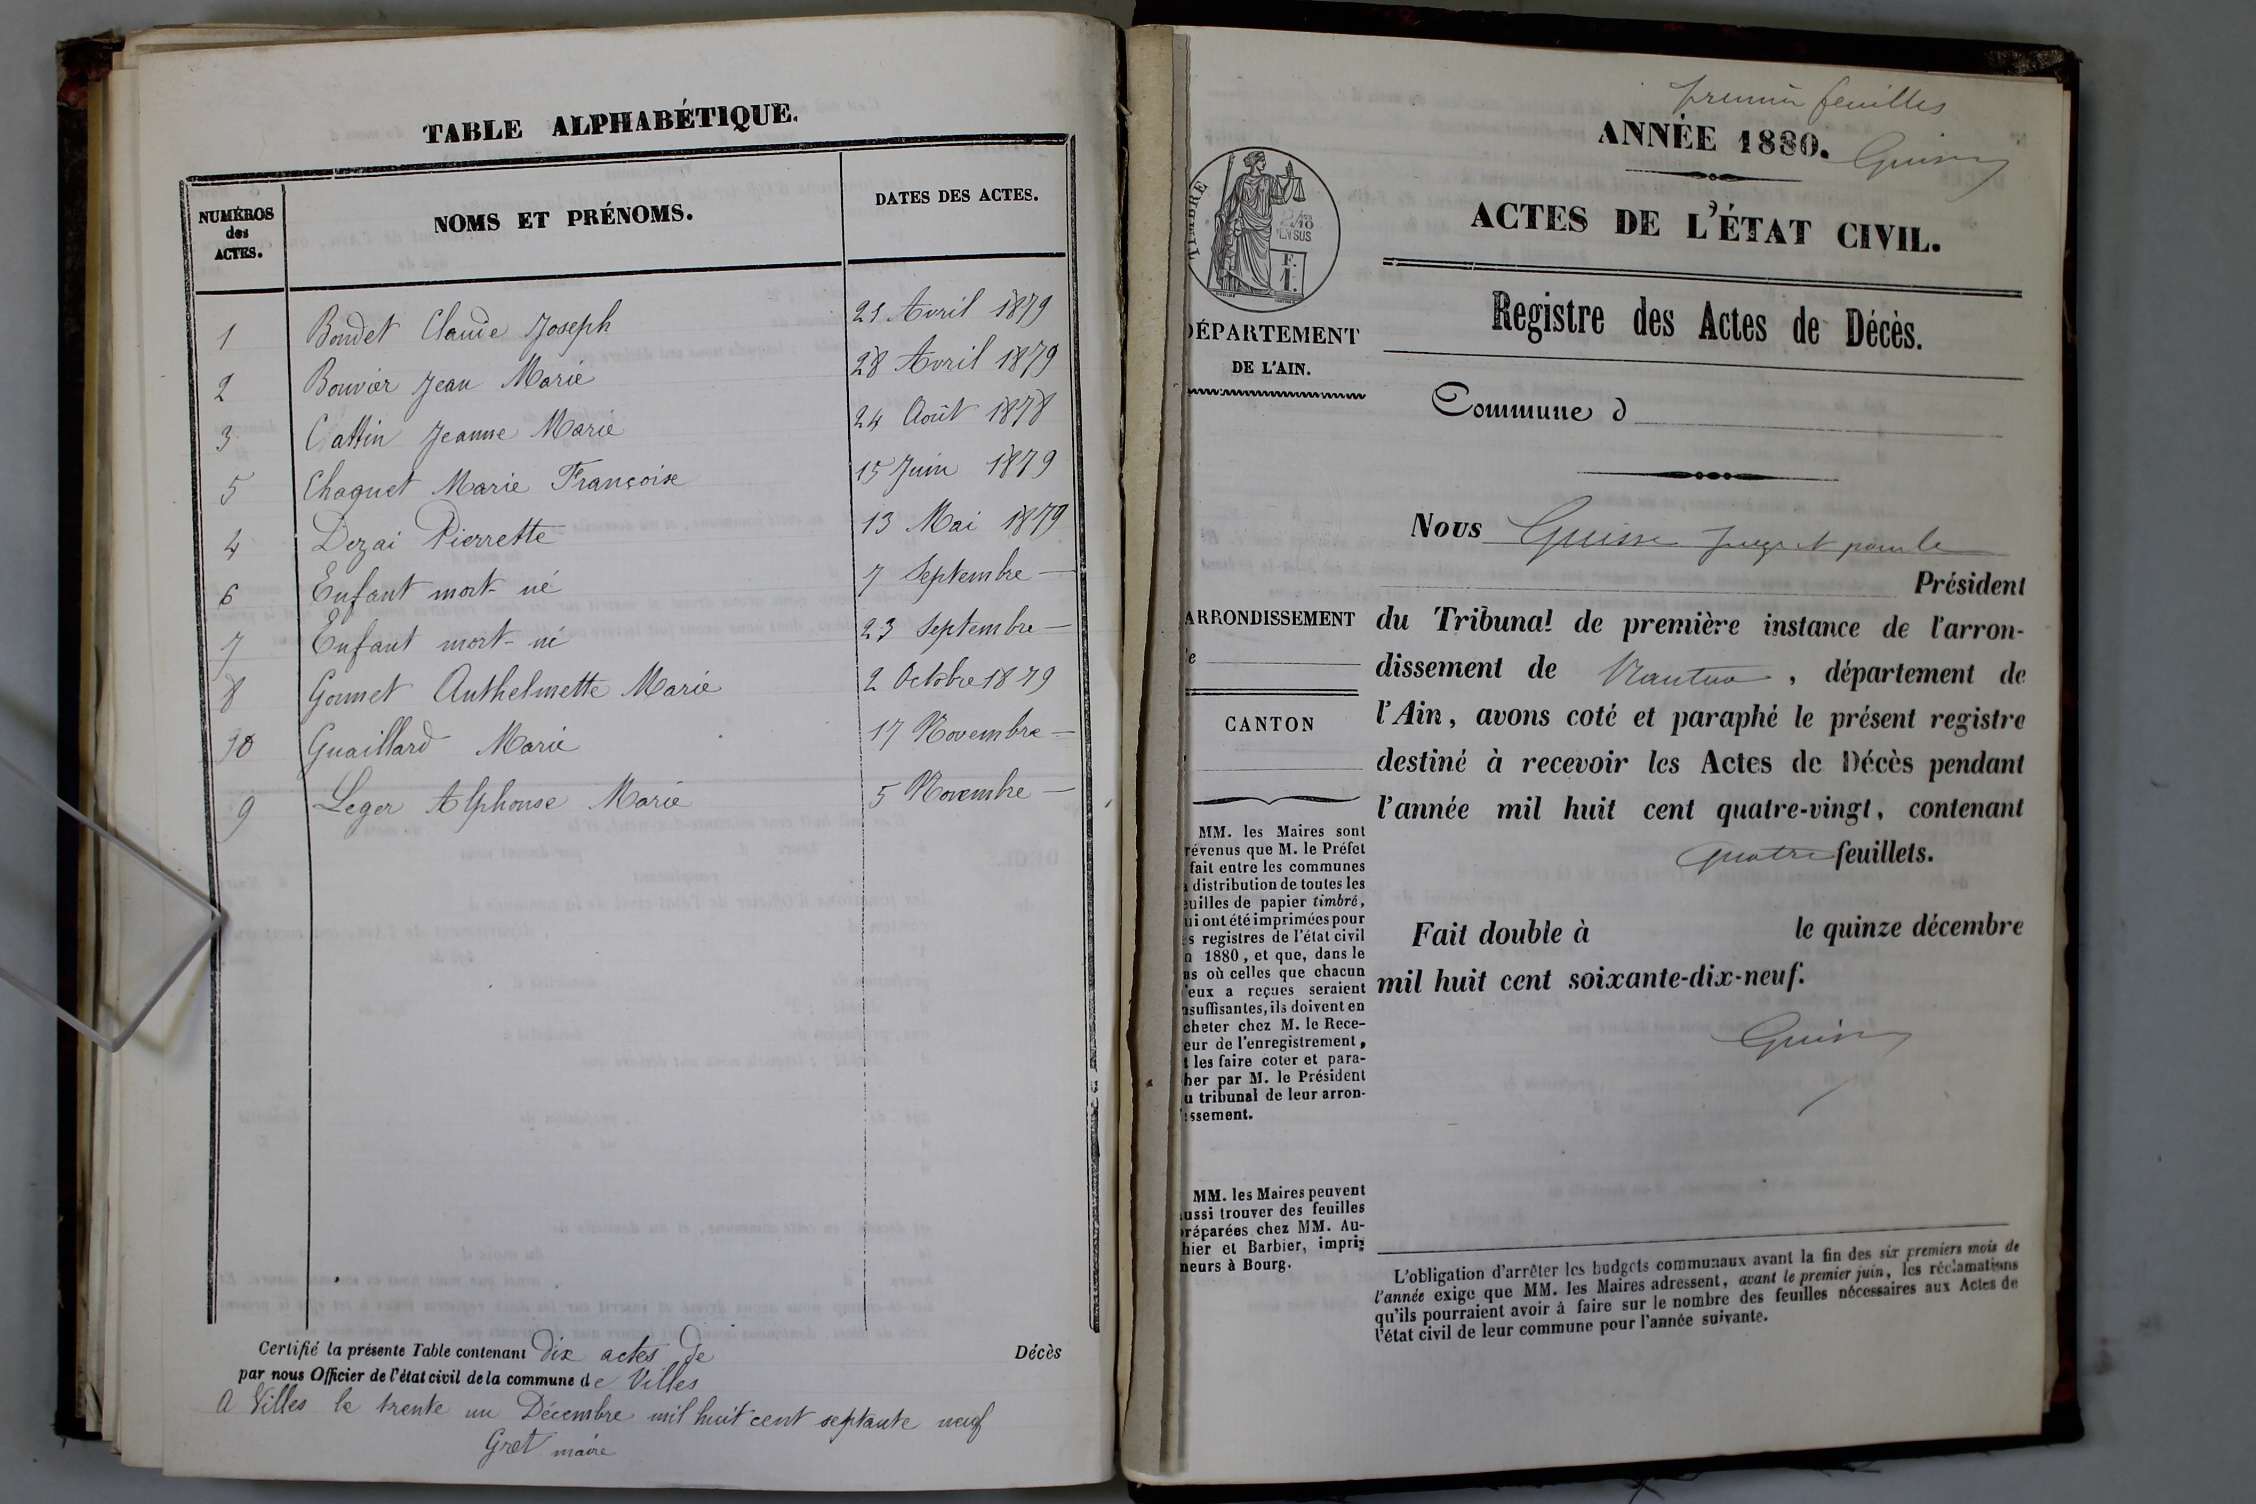 TABLE ALPHABÉTIQUE.
NUMÉROS
des
ACTES.
NOMS ET PRÉNOMS.
DATES DES ACTES.
1 Boudet Claude Joseph 21 Avril 1879
2 Bouvier Jean Marie 28 Avril 1879
3 Cattin Jeanne Marie 24 Août 1878
5 Chaquet Marie Françoise 15 Juin 1879
4 Dezai Pierrette 13 Mai 1879
6 Enfant mort-né 7 Septembre —
7 Enfant mort-né 23 Septembre —
8 Gonnet Anthelmette Marie 2 Octobre 1879
10 Guaillard Marie 17 Novembre —
9 Leger Alphonse Marie 5 Novembre —
Certifié la présente Table contenant dix actes de Décès
par nous Officier de l'état civil de la commune de Villes
A Villes le trente un Décembre mil huit cent septante neuf
Gret maire
feuilles
ANNÉE 1880.
ACTES DE L'ÉTAT CIVIL.
Registre des Actes de Décès.
TIMBRE
EN SUS
F.
1.
DÉPARTEMENT
DE L'AIN.
Commune d
Nous
Président
du Tribunal de première instance de l'arron-
dissement de Nantua, département de
l'Ain, avons coté et paraphé le présent registre
destiné à recevoir les Actes de Décès pendant
l'année mil huit cent quatre-vingt, contenant
quatre feuillets.
Fait double à le quinze décembre
mil huit cent soixante-dix-neuf.
ARRONDISSEMENT
e
CANTON
MM. les Maires sont
révenus que M. le Préfet
fait entre les communes
distribution de toutes les
euilles de papier timbré,
ui ont été imprimées pour
s registres de l'état civil
n 1880, et que, dans le
as où celles que chacun
'eux a reçues seraient
nsuffisantes, ils doivent en
cheter chez M. le Rece-
eur de l'enregistrement,
t les faire coter et para-
her par M. le Président
u tribunal de leur arron-
issement.
MM. les Maires peuvent
ussi trouver des feuilles
réparées chez MM. Au-
hier et Barbier, impri-
meurs à Bourg.
L'obligation d'arrêter les budgets communaux avant la fin des six premiers mois de
l'année exige que MM. les Maires adressent, avant le premier juin, les réclamations
qu'ils pourraient avoir à faire sur le nombre des feuilles nécessaires aux Actes de
l'état civil de leur commune pour l'année suivante.